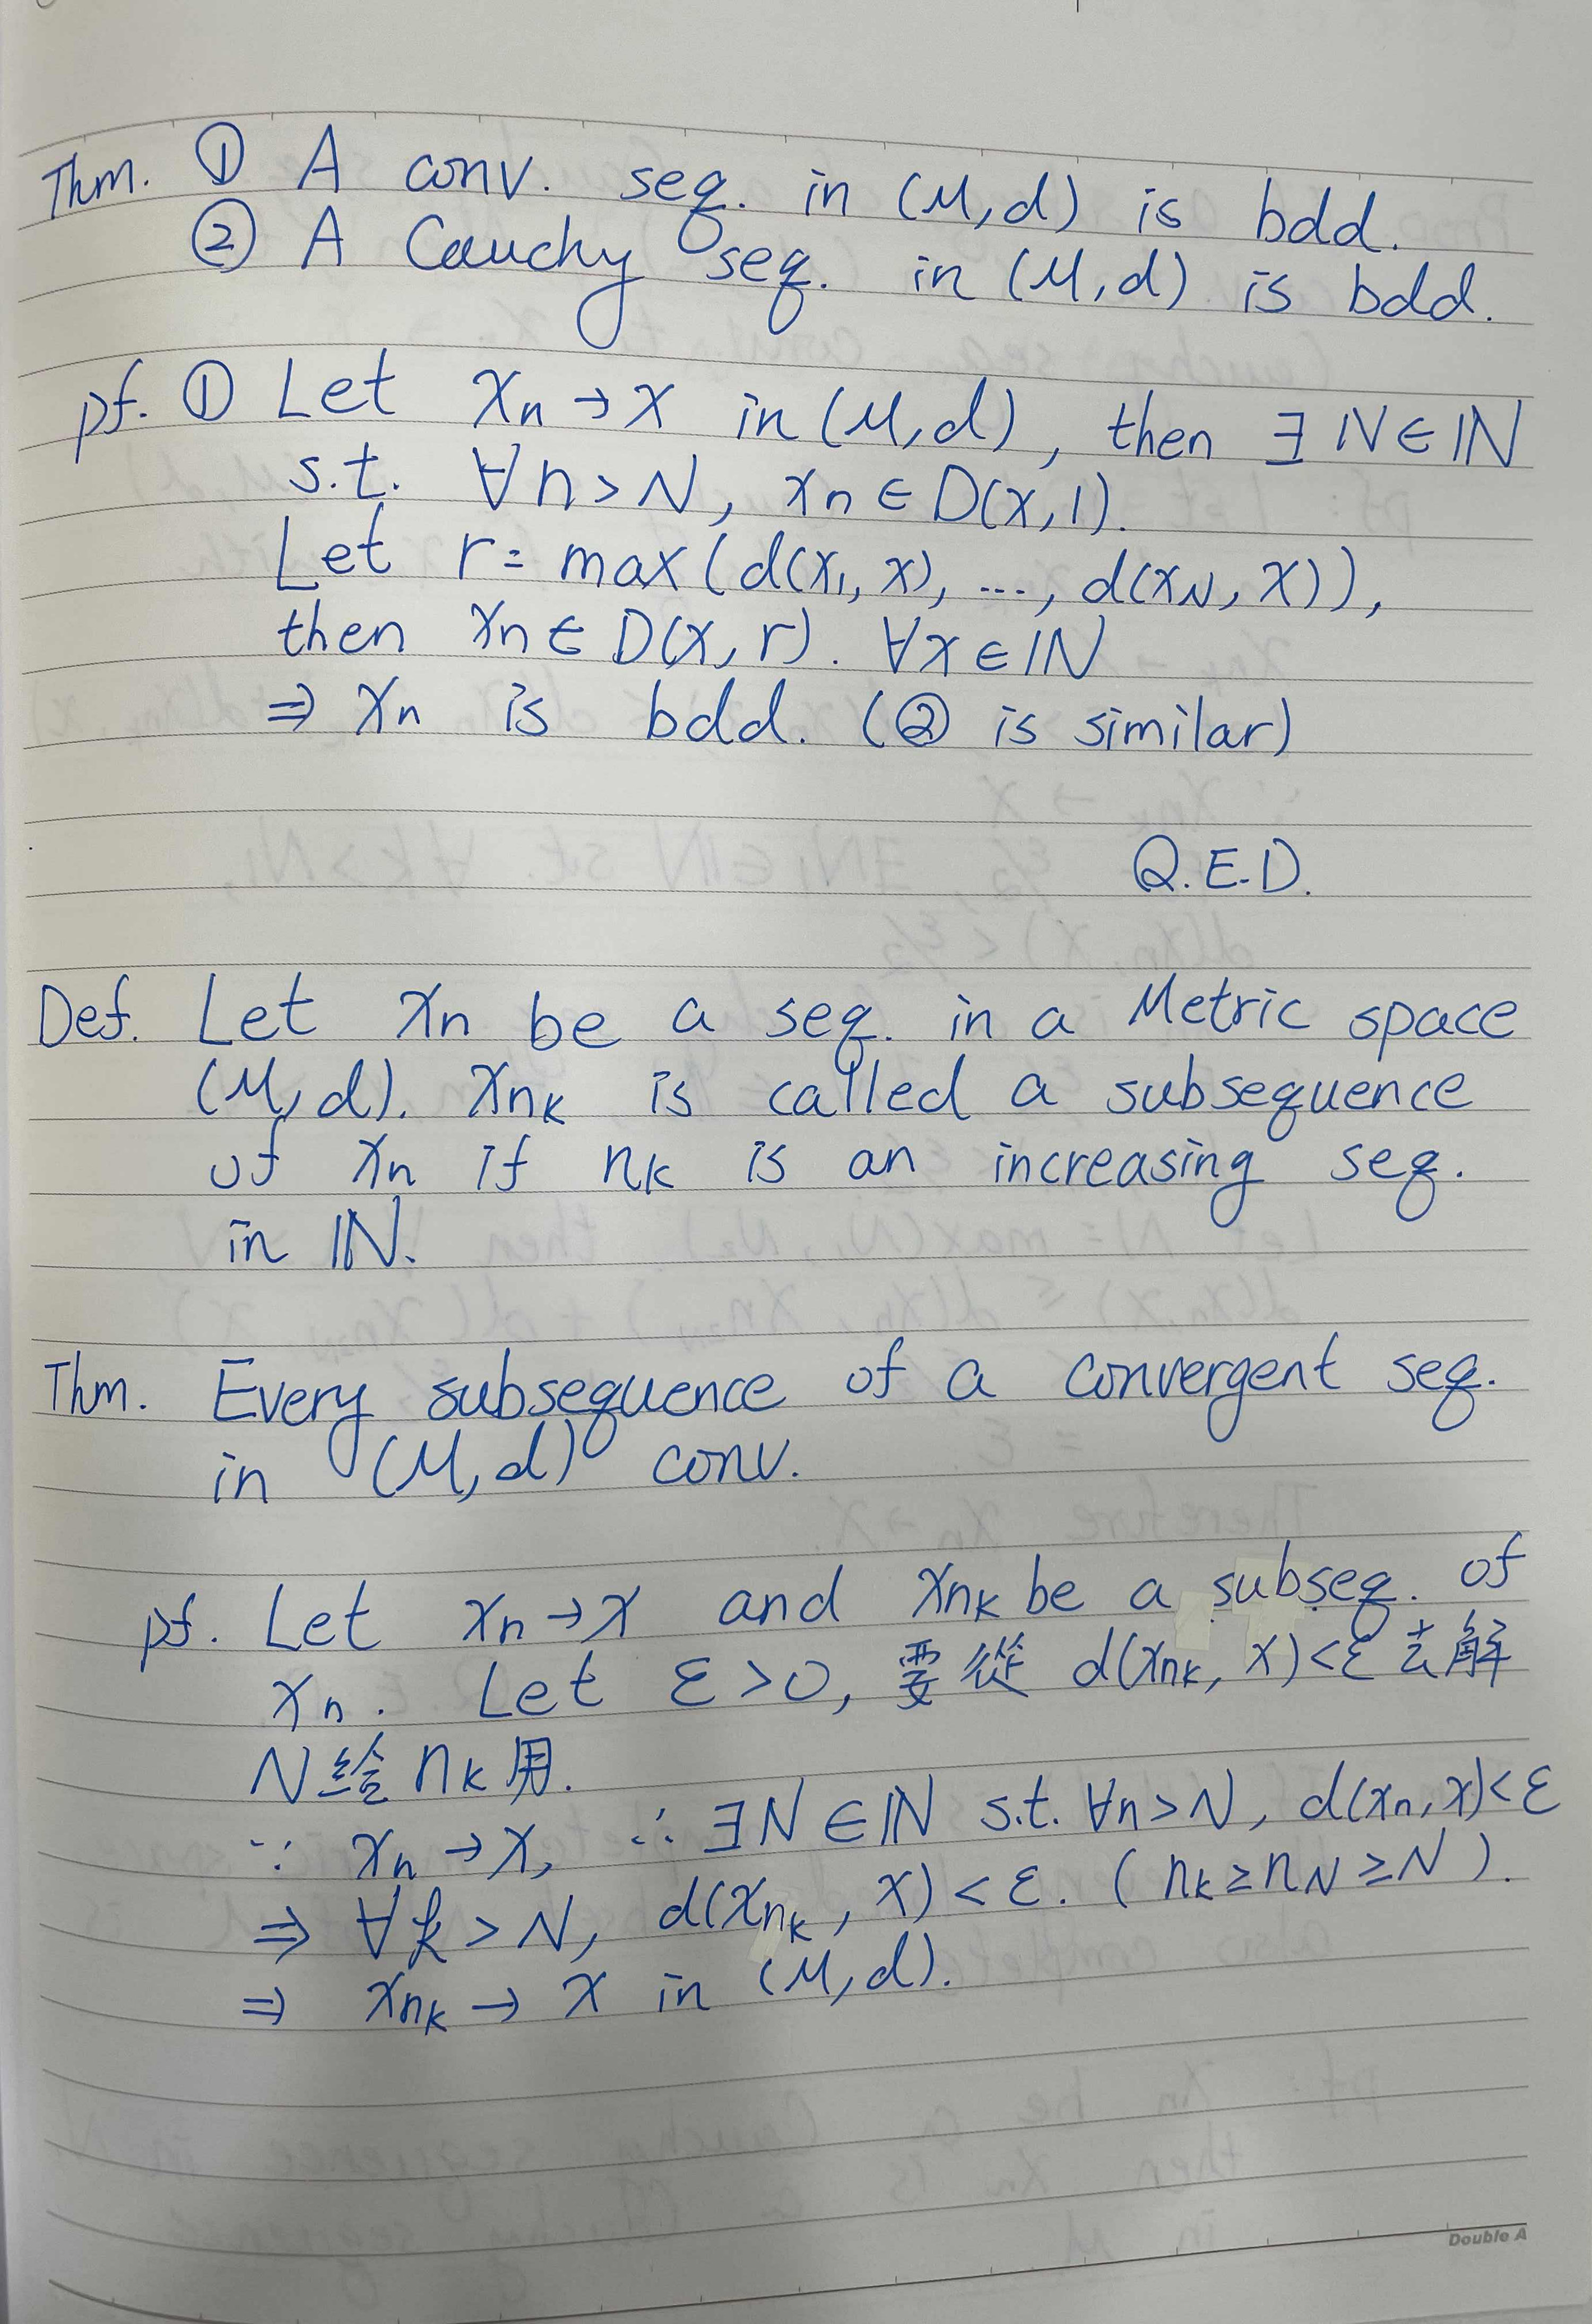 Thm. ① A conv. seq. in (M,d) is bdd.
② A Cauchy seq. in (M,d) is bdd.
pf. ① Let xn → x in (M,d), then ∃ N ∈ ℕ
s.t. ∀n > N, xn ∈ D(x,1).
Let r = max(d(x1, x), ..., d(xN, x)),
then xn ∈ D(x, r). ∀x ∈ ℕ
⇒ xn is bdd. (② is similar)
Q.E.D.
Def. Let xn be a seq. in a Metric space
(M,d). xnk is called a subsequence
of xn if nk is an increasing seq.
in ℕ.
Thm. Every subsequence of a convergent seq.
in (M,d) conv.
pf. Let xn → x and xnk be a subseq. of
xn. Let ε > 0, 要從 d(xnk, x) < ε 去解
N給 nk 用.
∵ xn → x, ∴ ∃N ∈ ℕ s.t. ∀n > N, d(xn, x) < ε
⇒ ∀k > N, d(xnk, x) < ε. (nk ≥ nN ≥ N).
⇒ xnk → x in (M,d).
Double A